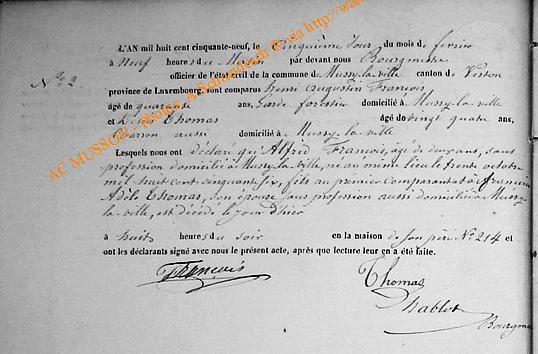 L'AN mil huit cent cinquante-neuf, le Cinquième Jour du mois de février
à Neuf heures du Matin par devant nous Bourgmestre
officier de l'état civil de la commune de Mussy-la-ville canton de Virton
No 2
province de Luxembourg, sont comparus henri Augustin François
âgé de quarante ans, Garde forestier domicilié à Mussy-la-ville
et Thomas âgé de vingt quatre ans,
aussi domicilié à Mussy-la-ville
Lesquels nous ont déclaré que Alfred François, âgé de deux ans, sans
profession domicilié à Mussy-la-ville, né au même lieu le trente octobre
mil huit cent cinquante six, fils au premier Comparant et à
Adèle Thomas, son épouse sans profession aussi domiciliée à Mussy-
la-ville, est décédé le jour d'hier
à huit heures du soir en la maison de son père No 214 et
ont les déclarants signé avec nous le présent acte, après que lecture leur en a été faite.
François
Thomas
Chablot
Bourgme
AC MUSSON - Photos A. Schmidgen © via http://www